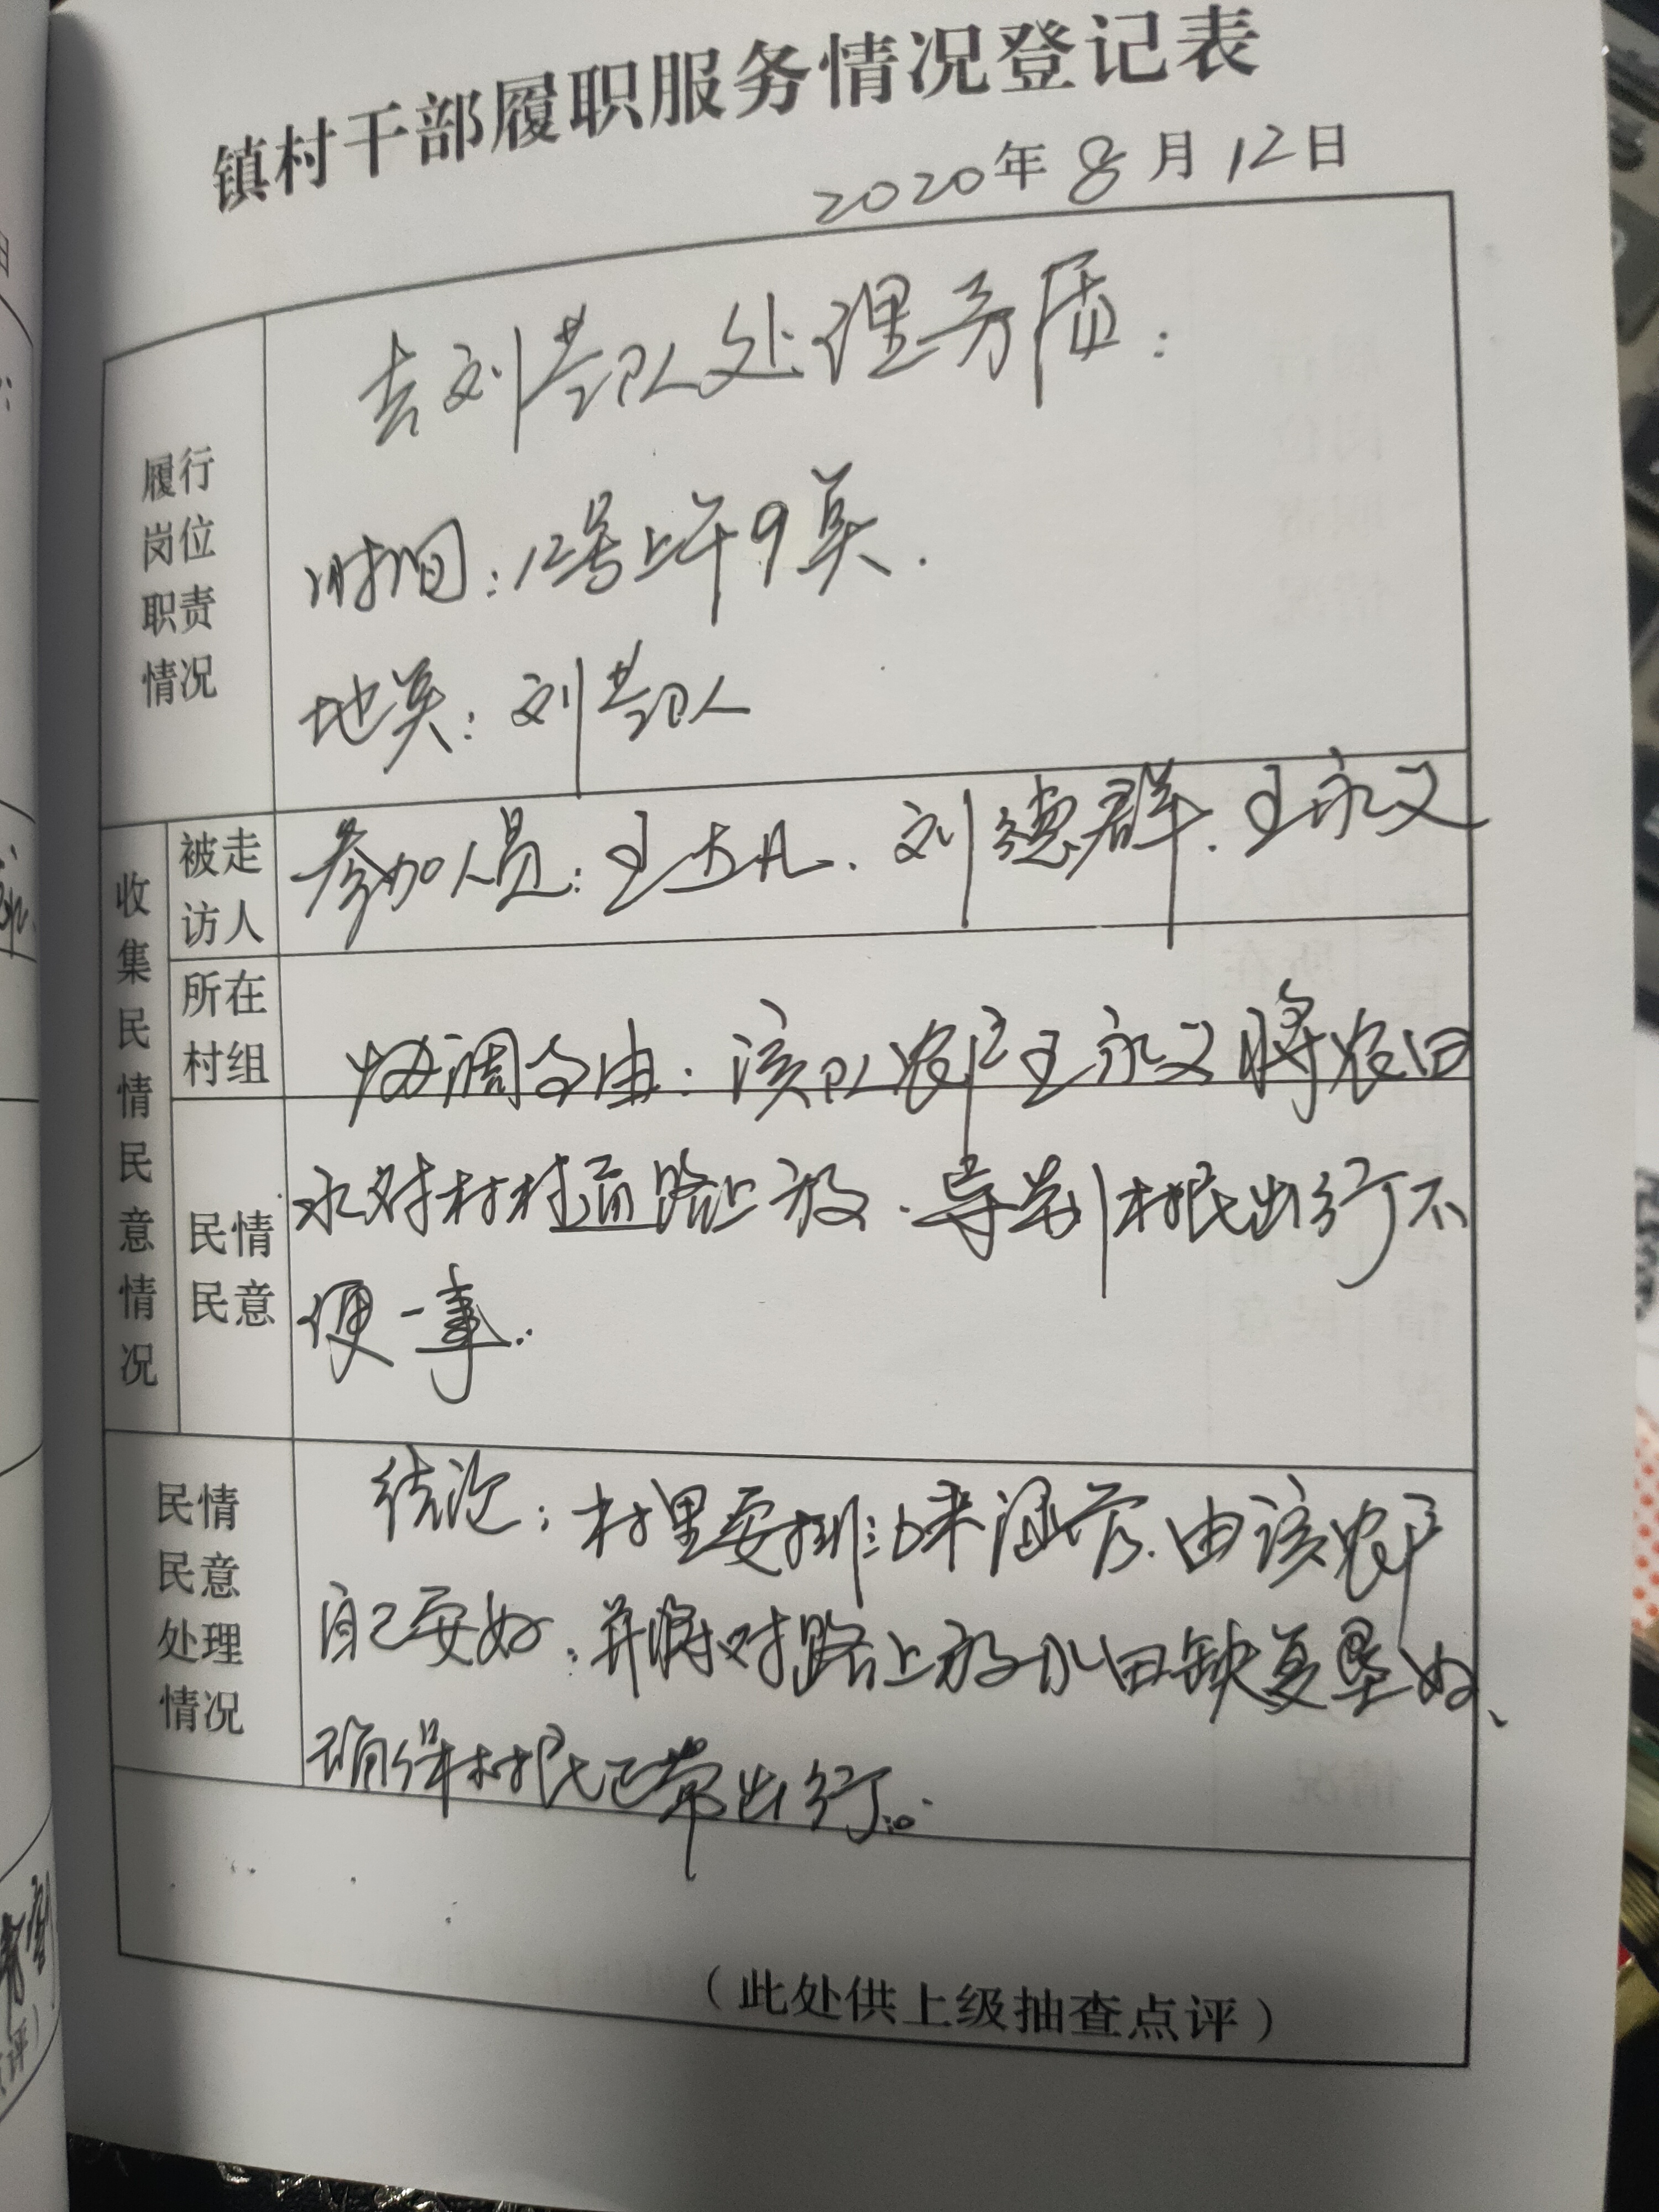 镇村干部履职服务情况登记表
2020年8月12日
履行
岗位
职责
情况
去刘芸队处理矛盾:
时间:12号上午9点.
地点:刘芸队
收集民情民意情况
被走
访人
参加人员:王大凡.刘德群.王永义
所在
村组
协调事由:该队农户王永义将农田
民情
民意
水对村村通路上放.导致村民出行不
便一事.
民情
民意
处理
情况
结论:村里安排 涵管.由该农户
自己安好.并将对路上放水田缺复垦好、
确保村民正常出行。
(此处供上级抽查点评)